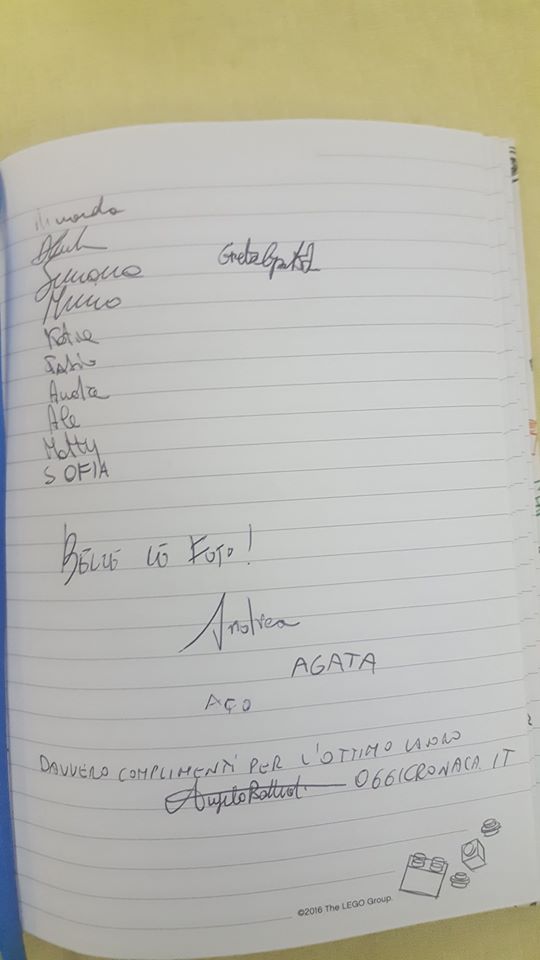 Miranda
Simona
Mirko
Katia
Fabio
Andrea
Ale
Matty
SOFIA
BELLE LE FOTO!
Andrea
AGATA
AÇO
DAVVERO COMPLIMENTI PER L'OTTIMO LAVORO
Angelo OGGICRONACA.IT
©2016 The LEGO Group.